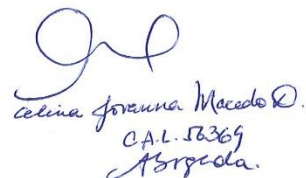 Celina Jovanna Macedo D.
C.A.L. 56369
Abogada.